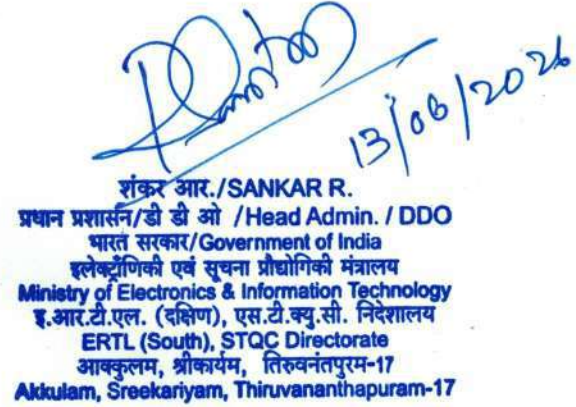 13/06/2026
शंकर आर./SANKAR R.
प्रधान प्रशासन/डी डी ओ /Head Admin. / DDO
भारत सरकार/Government of India
इलेक्ट्रॉणिकी एवं सूचना प्रौद्योगिकी मंत्रालय
Ministry of Electronics & Information Technology
इ.आर.टी.एल. (दक्षिण), एस.टी.क्यु.सी. निदेशालय
ERTL (South), STQC Directorate
आक्कुलम, श्रीकार्यम, तिरुवनंतपुरम-17
Akkulam, Sreekariyam, Thiruvananthapuram-17